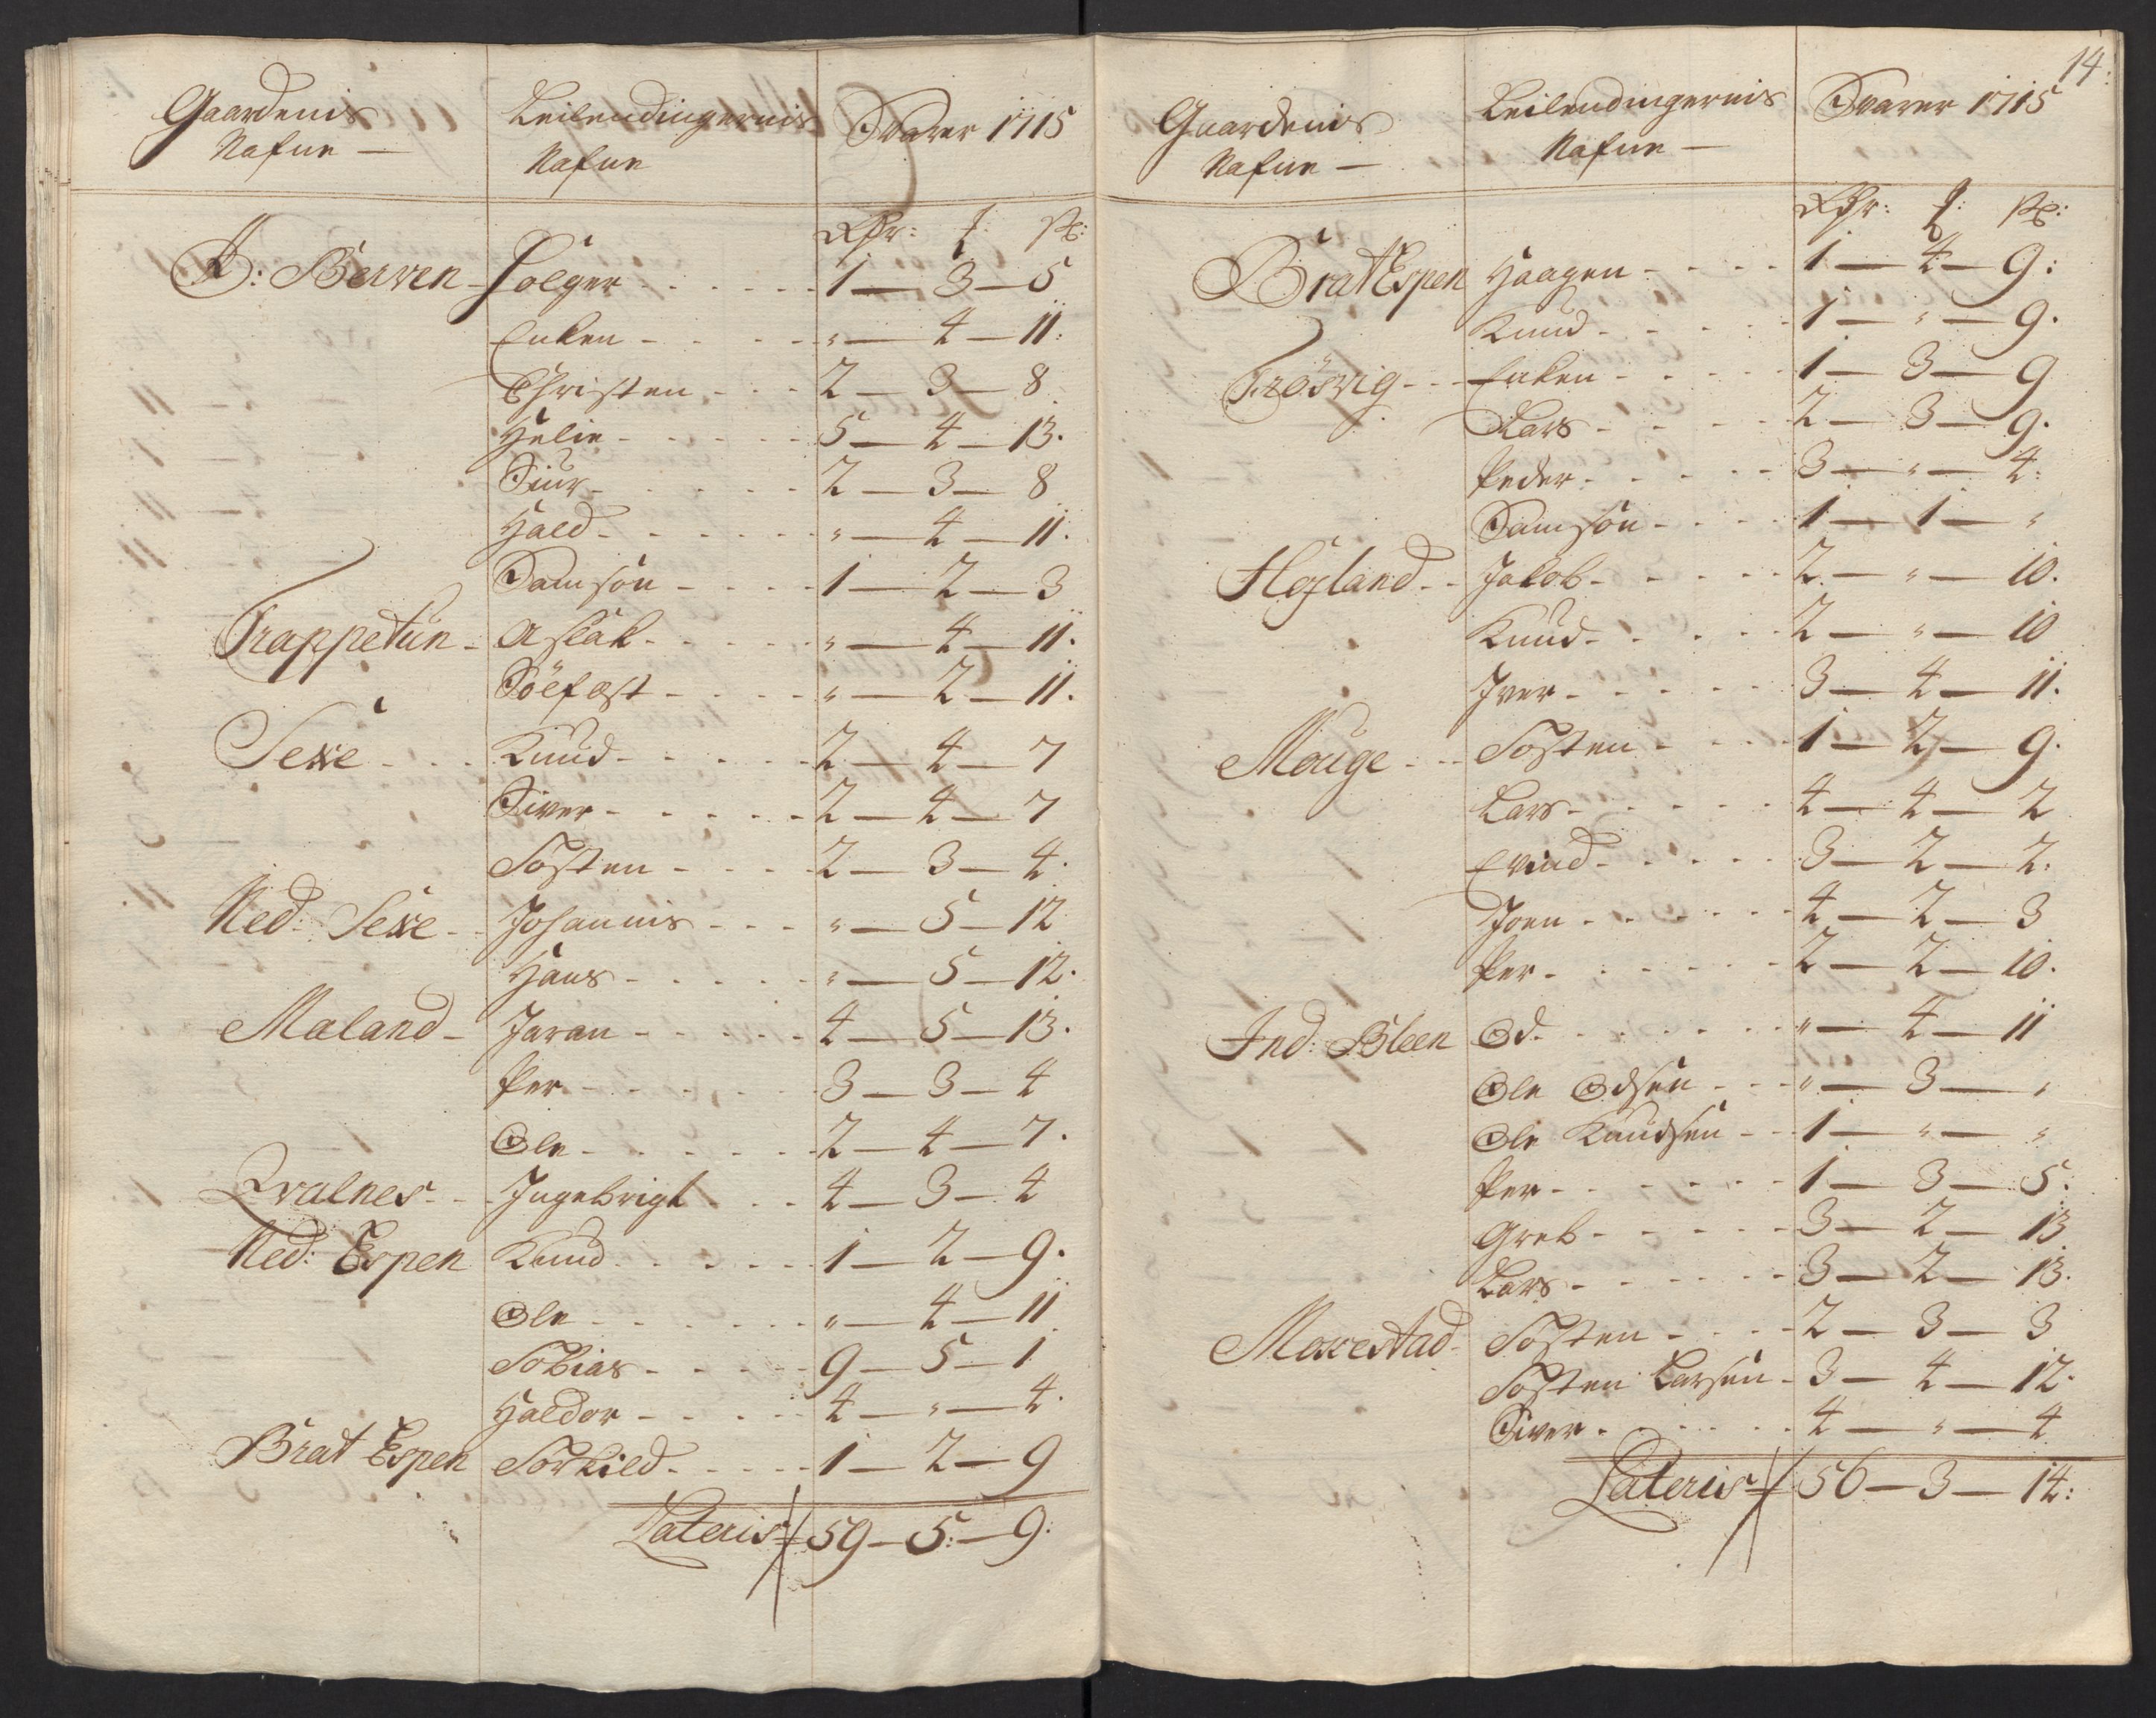 Gaardenis Nafne —
Leilendingernis Nafne
Svarer 1715
Rdr: ƒ: sk:
A: Berven - Holger - - - 1 — 3 — 5
Enken - - - " — 4 — 11:
Christen - - - 2 — 3 — 8
Helie - - - 5 — 4 — 13.
Siur - - - 2 — 3 — 8
Hald - - - " — 4 — 11.
Samson - - - 1 — 2 — 3
Trappetun - Aslak - - - " — 4 — 11.
Söefæst - - - " — 2 — 11.
Sexe - - - Knud - - - 2 — 4 — 7
Siver - - - 2 — 4 — 7
Tosten - - - 2 — 3 — 4.
Ned: Sexe - Johannis - - - " — 5 — 12
Hans - - - " — 5 — 12.
Maland - Jaran - - - 4 — 5 — 13.
Per - - - 3 — 3 — 4
Ole - - - 2 — 4 — 7.
Qvalnes - - Ingebrigt - - 4 — 3 — 4
Ned: Espen Knud - - - 1 — 2 — 9.
Ole - - - " — 4 — 11
Tobias - - - 9 — 5 — 1
Haldor - - - 4 — " — 4.
Brat Espen Torkild - - - 1 — 2 — 9
Lateris 59 — 5 — 9:
14:
Gaardenis Nafne —
Leilendingernis Nafne —
Svarer 1715
Rdr: ƒ: sk:
Brat Espen Haagen - - - 1 — 4 — 9:
Knud - - - 1 — " — 9.
Frösvig - - Enken - - - 1 — 3 — 9
Lars - - - 2 — 3 — 9.
Peder - - - 3 — " — 4:
Samson - - - 1 — 1 — "
Højland - - Jakob - - - 2 — " — 10.
Knud - - - 2 — " — 10
Iver - - - 3 — 4 — 11.
Mauge - - Tosten - - - 1 — 2 — 9.
Lars - - - 4 — 4 — 2
Evind - - - 3 — 2 — 2.
Joen - - - 4 — 2 — 3
Per - - - 2 — 2 — 10.
Ind: Bleen Od - - - " — 4 — 11
Ole Odsen - - - " — 3 — "
Ole Knudsen - - 1 — " — "
Per - - - 1 — 3 — 5.
Greb - - - 3 — 2 — 13
Lars - - - 3 — 2 — 13.
Moxestad - Tosten - - - 2 — 3 — 3
Tosten Larsen - 3 — 4 — 12.
Siver - - - 4 — " — 4
Lateris 56 — 3 — 14: